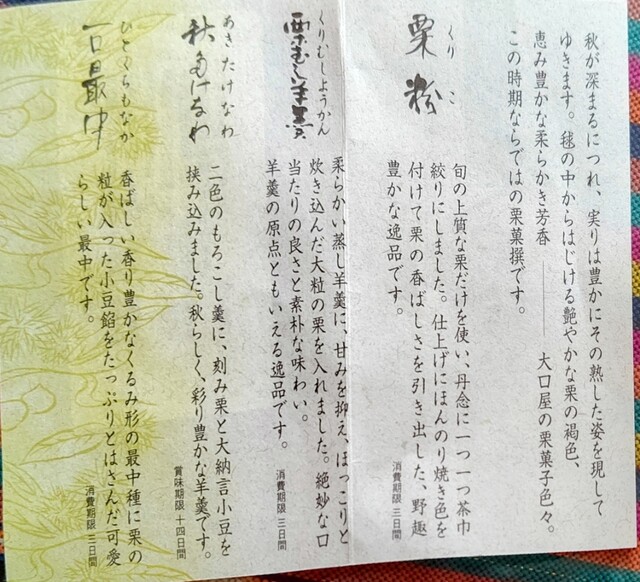 秋が深まるにつれ、実りは豊かにその熟した姿を現して
ゆきます。毬の中からはじける艶やかな栗の褐色、
恵み豊かな柔らかき芳香――大口屋の栗菓子色々。
この時期ならではの栗菓撰です。
くりこ
栗粉
旬の上質な栗だけを使い、丹念に一つ一つ茶巾
絞りにしました。仕上げにほんのり焼き色を
付けて栗の香ばしさを引き出した、野趣
豊かな逸品です。
消費期限 三日間
くりむしようかん
栗むし羊羹
柔らかい蒸し羊羹に、甘みを抑え、ほっこりと
炊き込んだ大粒の栗を入れました。絶妙な口
当たりの良さと素朴な味わい。
羊羹の原点ともいえる逸品です。
消費期限 三日間
あきたけなわ
秋たけなわ
二色のもろこし羹に、刻み栗と大納言小豆を
挟み込みました。秋らしく、彩り豊かな羊羹です。
賞味期限 十四日間
ひとくちもなか
一口最中
香ばしい香り豊かなくるみ形の最中種に栗の
粒が入った小豆餡をたっぷりとはさんだ可愛
らしい最中です。
消費期限 三日間